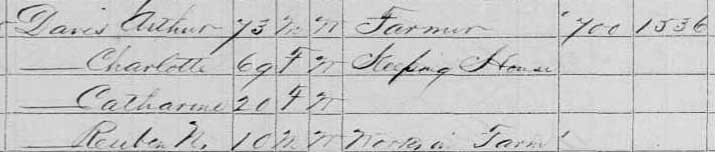 Davis Arthur 73 M W Farmer 700 1536
— Charlotte 69 F W Keeping House
— Catharine 20 F W
— Reuben N. 10 M W Works on Farm